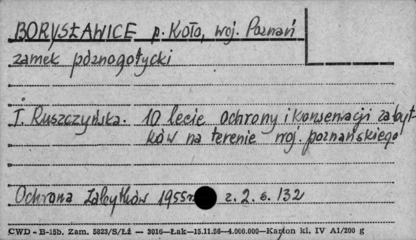 BORYSŁAWICE p. Koło, woj. Poznań
zamek późnogotycki
T. Ruszczyńska. 10 lecie ochrony i konserwacji zabyt-
ków na terenie woj. poznańskiego
Ochrona Zabytków 1955r z. 2. s. 132
CWD - B-15b. Zam. 5823/S/Łż — 3016—Łak—15.11.56—4.000.000—Karton kl. IV A1/200 g